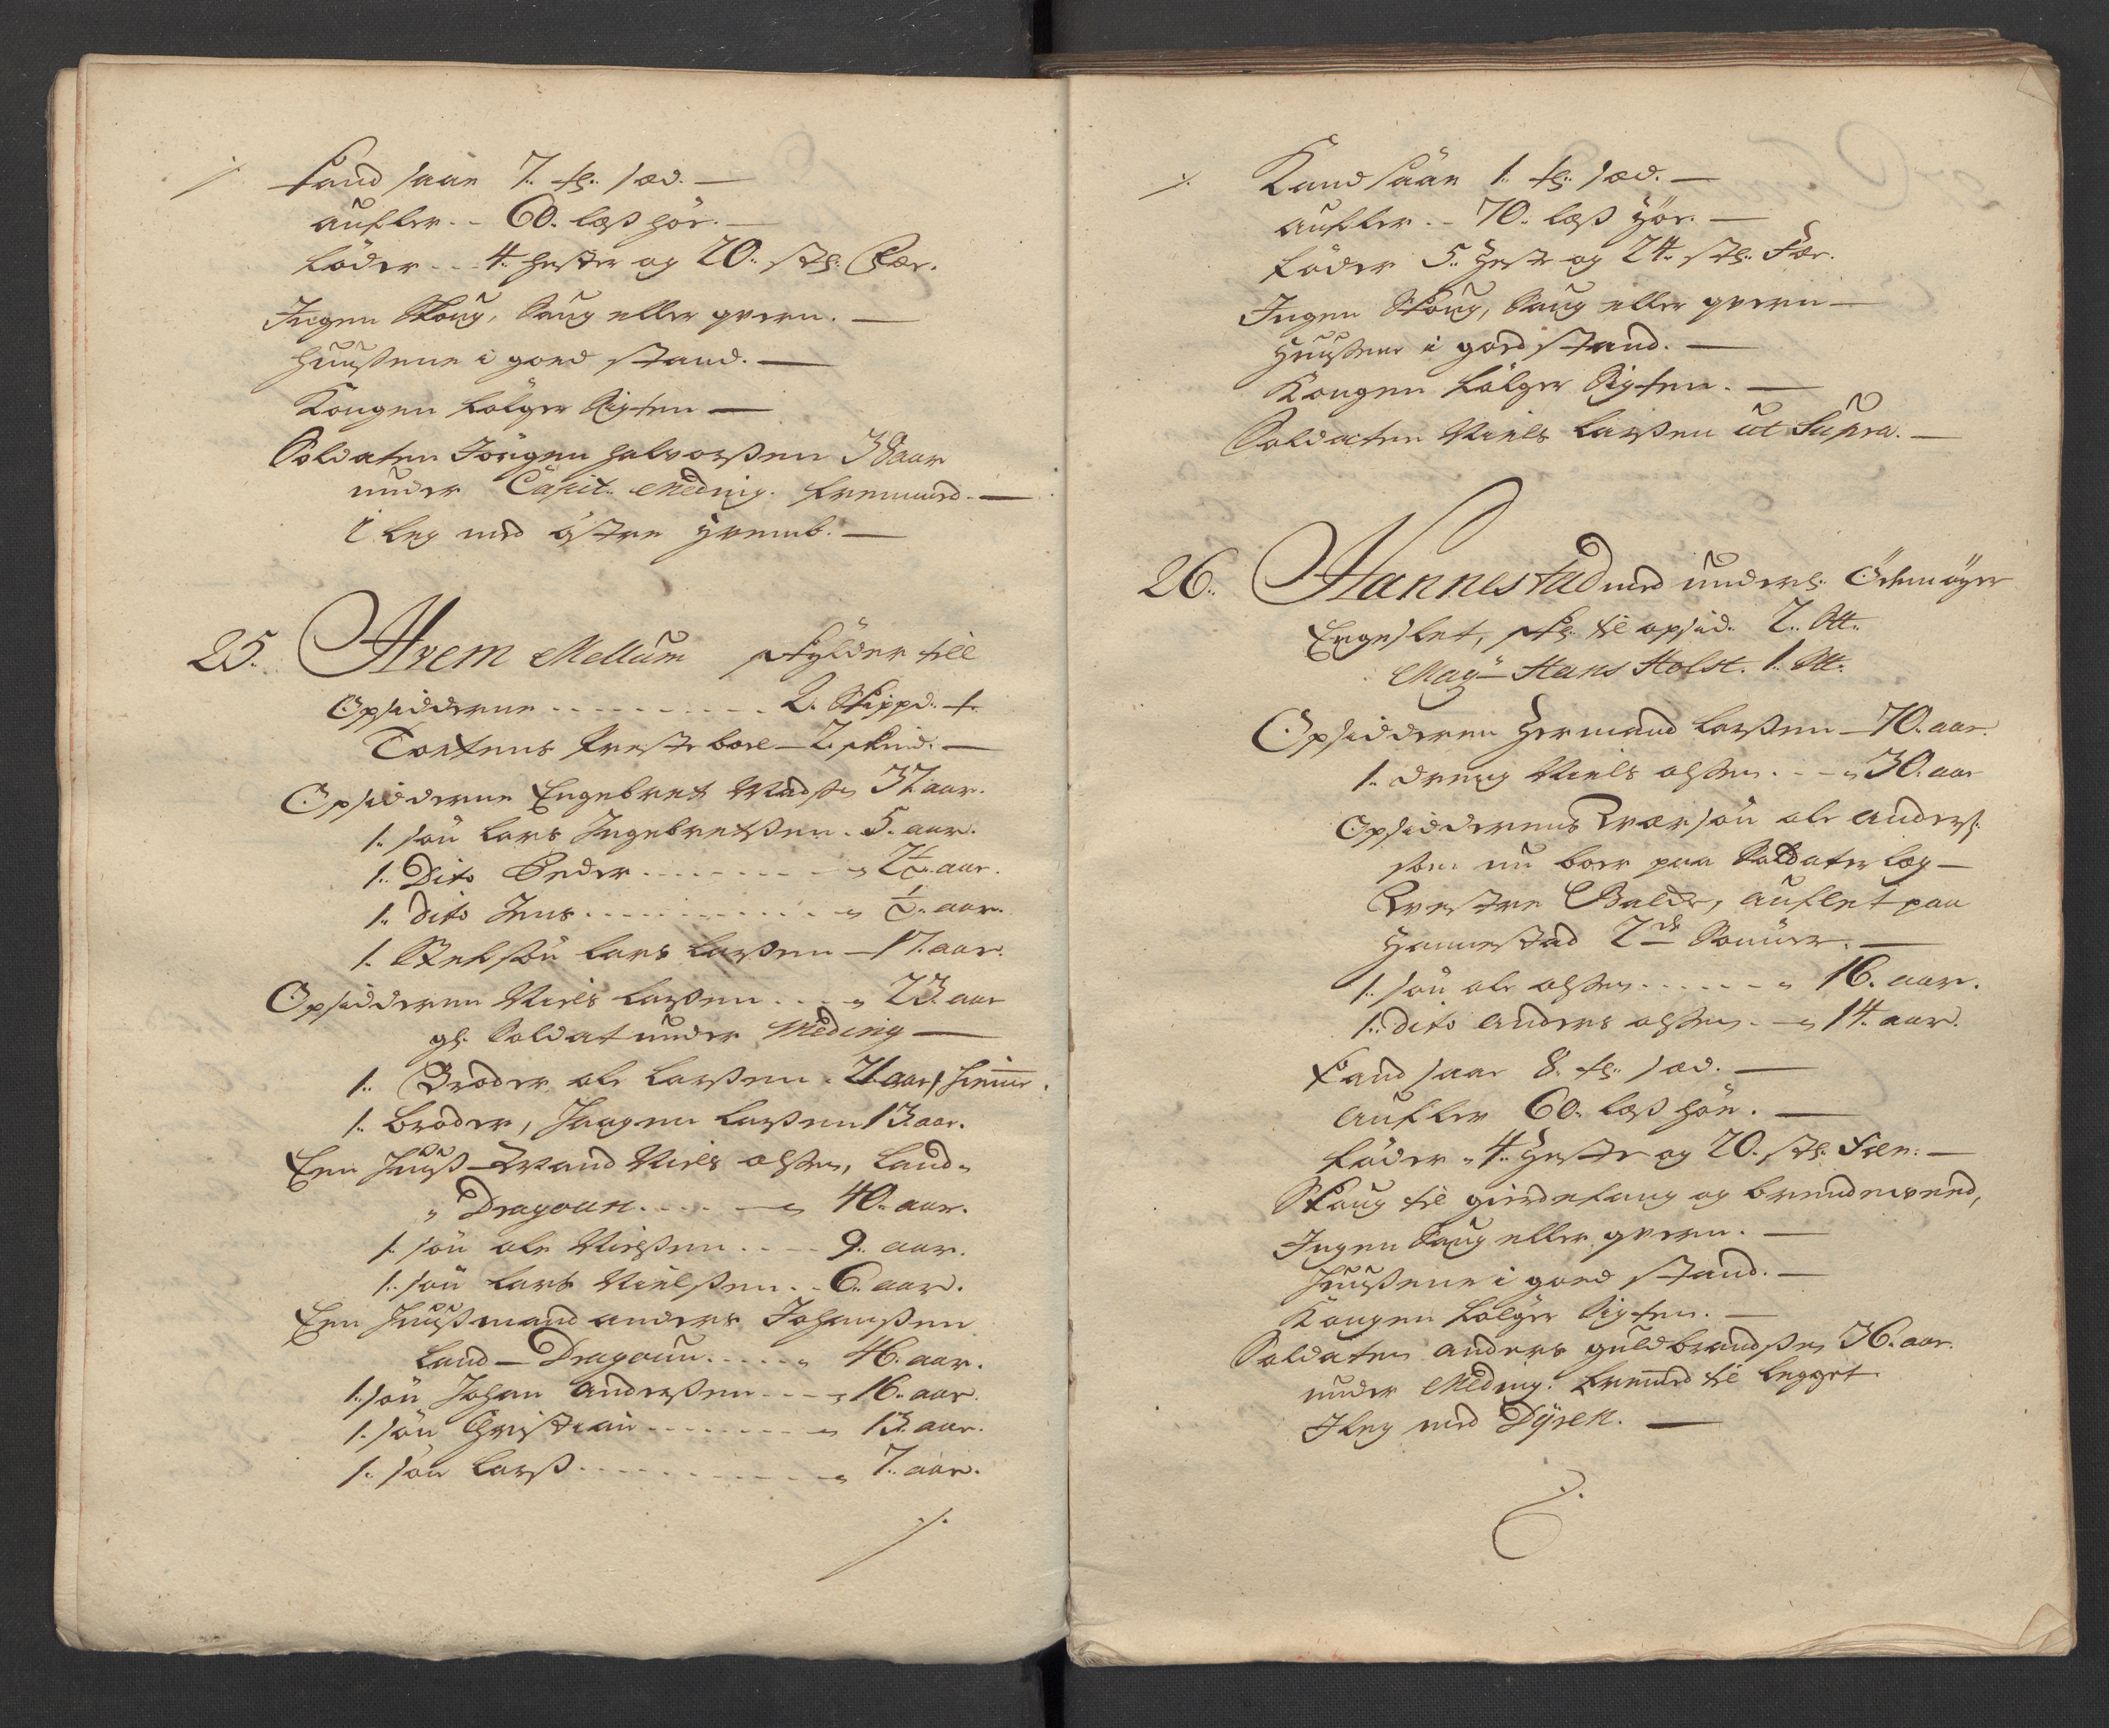 Kand saae 7. tr. sæd. —
aufler. - 60. læß höe. —
föder - - 4. hester og 20. stk. Fæe.
Ingen Skoug, Saug eller qvern. —
Huußene i goed stand. —
Kongen fölger Rigten —
Soldaten Jörgen Halvorßen 38 aar
under Capit. Meding. fremmed. —
I leg med östre Hvemb. —
25. Hvem Mellum skylder till
Opsidderne - - - - 2. Skippd. t.
Toetens Preste boel — 2 skind. —
Opsidderne Engebret Madsen 37 aar.
1. sön Lars Ingebretßen. 5. aar.
1. Dito Peder - - - - 2½ aar.
1. dito Jens - - - - ½. aar.
1. Steksön Lars Larßen — 17. aar.
Opsidderen Niels Larßen - - - 23. aar
gl. Soldat under Meding —
1. Broder ole Larßen. 21 aar, hiemme.
1. broder, Haagen Larßen 13 aar.
Een Huuß-Mand Niels olßen, Land-
Dragoun - - - 40. aar.
1. sön ole Nielßen - - - 9. aar.
1. sön Lars Nielßen. - 6. aar.
Een Huußmand anders Johanßen
Land-Dragoun - - - 46. aar.
1. sön Johan Anderßen - - - 16. aar.
1. sön Christian - - - - 13. aar.
1. sön Larß - - - - 7. aar.
./.
./. Kand saae 1. tr. sæd. —
aufler. - 70. læß Höe. —
föder 5. Heste og 24. stk. Fæe.
Ingen Skoug, Saug eller qvern —
Huußene i goed stand. —
Kongen fölger Rigten. —
Soldaten Niels Larßen ut Supra. —
26. Hannestad med underl. Ödemöyer
Engeslet, sk. til opsid. 2. Ott.
Mag. Hans Holst. 1. Ott.
Opsidderen Hermand Larßen — 70. aar.
1. dreng Niels olßen. - - 30. aar
Opsidderens Værsön ole Anderß.
som nu boer paa Soldater læg —
Vestre Balke, auflet paa
Hannestad 2de Sönner. —
1. sön ole olßen - - - - 16. aar.
1. dito Anders olßen. - 14. aar.
Kand saae 8. tr. sæd. —
Aufler 60. læß höe. —
föder - 4. Heste og 20. stk. Fæe. —
Skoug til gierdefang og brendeveed,
Ingen Saug eller qvern. —
Huußene i goed stand. —
Kongen fölger Rigten. —
Soldaten Anders guldbrandßen 36. aar.
under Meding. fremmed til legget
I leg med Dyren. —
./.